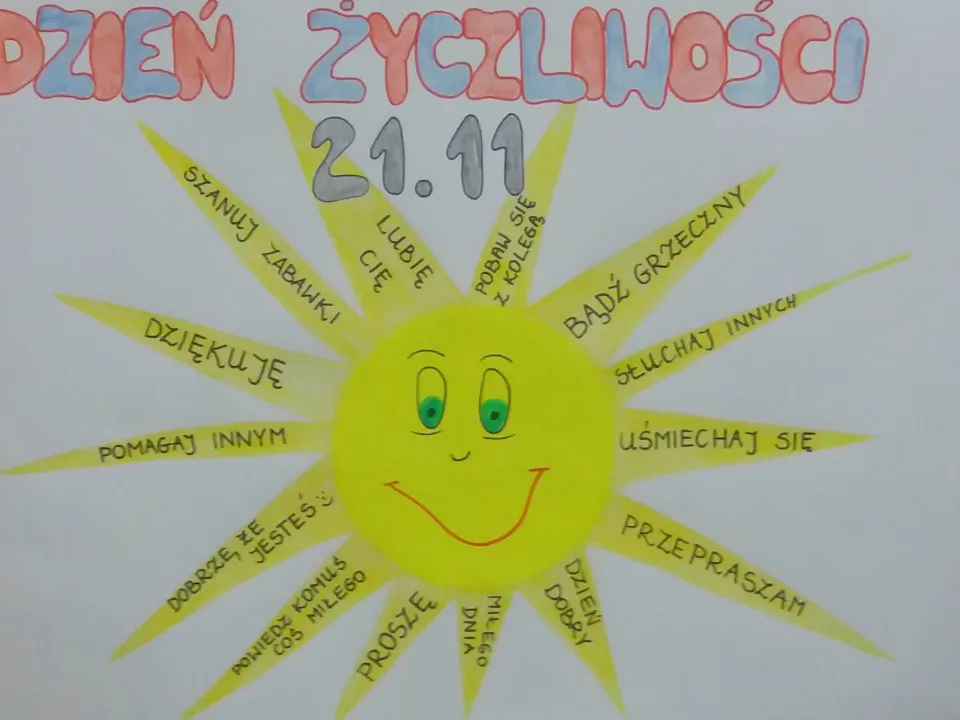 DZIEŃ ŻYCZLIWOŚCI
21.11
SZANUJ ZABAWKI
LUBIĘ
CIĘ
POBAW SIĘ
Z KOLEGĄ
BĄDŹ GRZECZNY
SŁUCHAJ INNYCH
UŚMIECHAJ SIĘ
PRZEPRASZAM
DZIEŃ
DOBRY
MIŁEGO
DNIA
PROSZĘ
POWIEDZ KOMUŚ
COŚ MIŁEGO
DOBRZE, ŻE
JESTEŚ
POMAGAJ INNYM
DZIĘKUJĘ